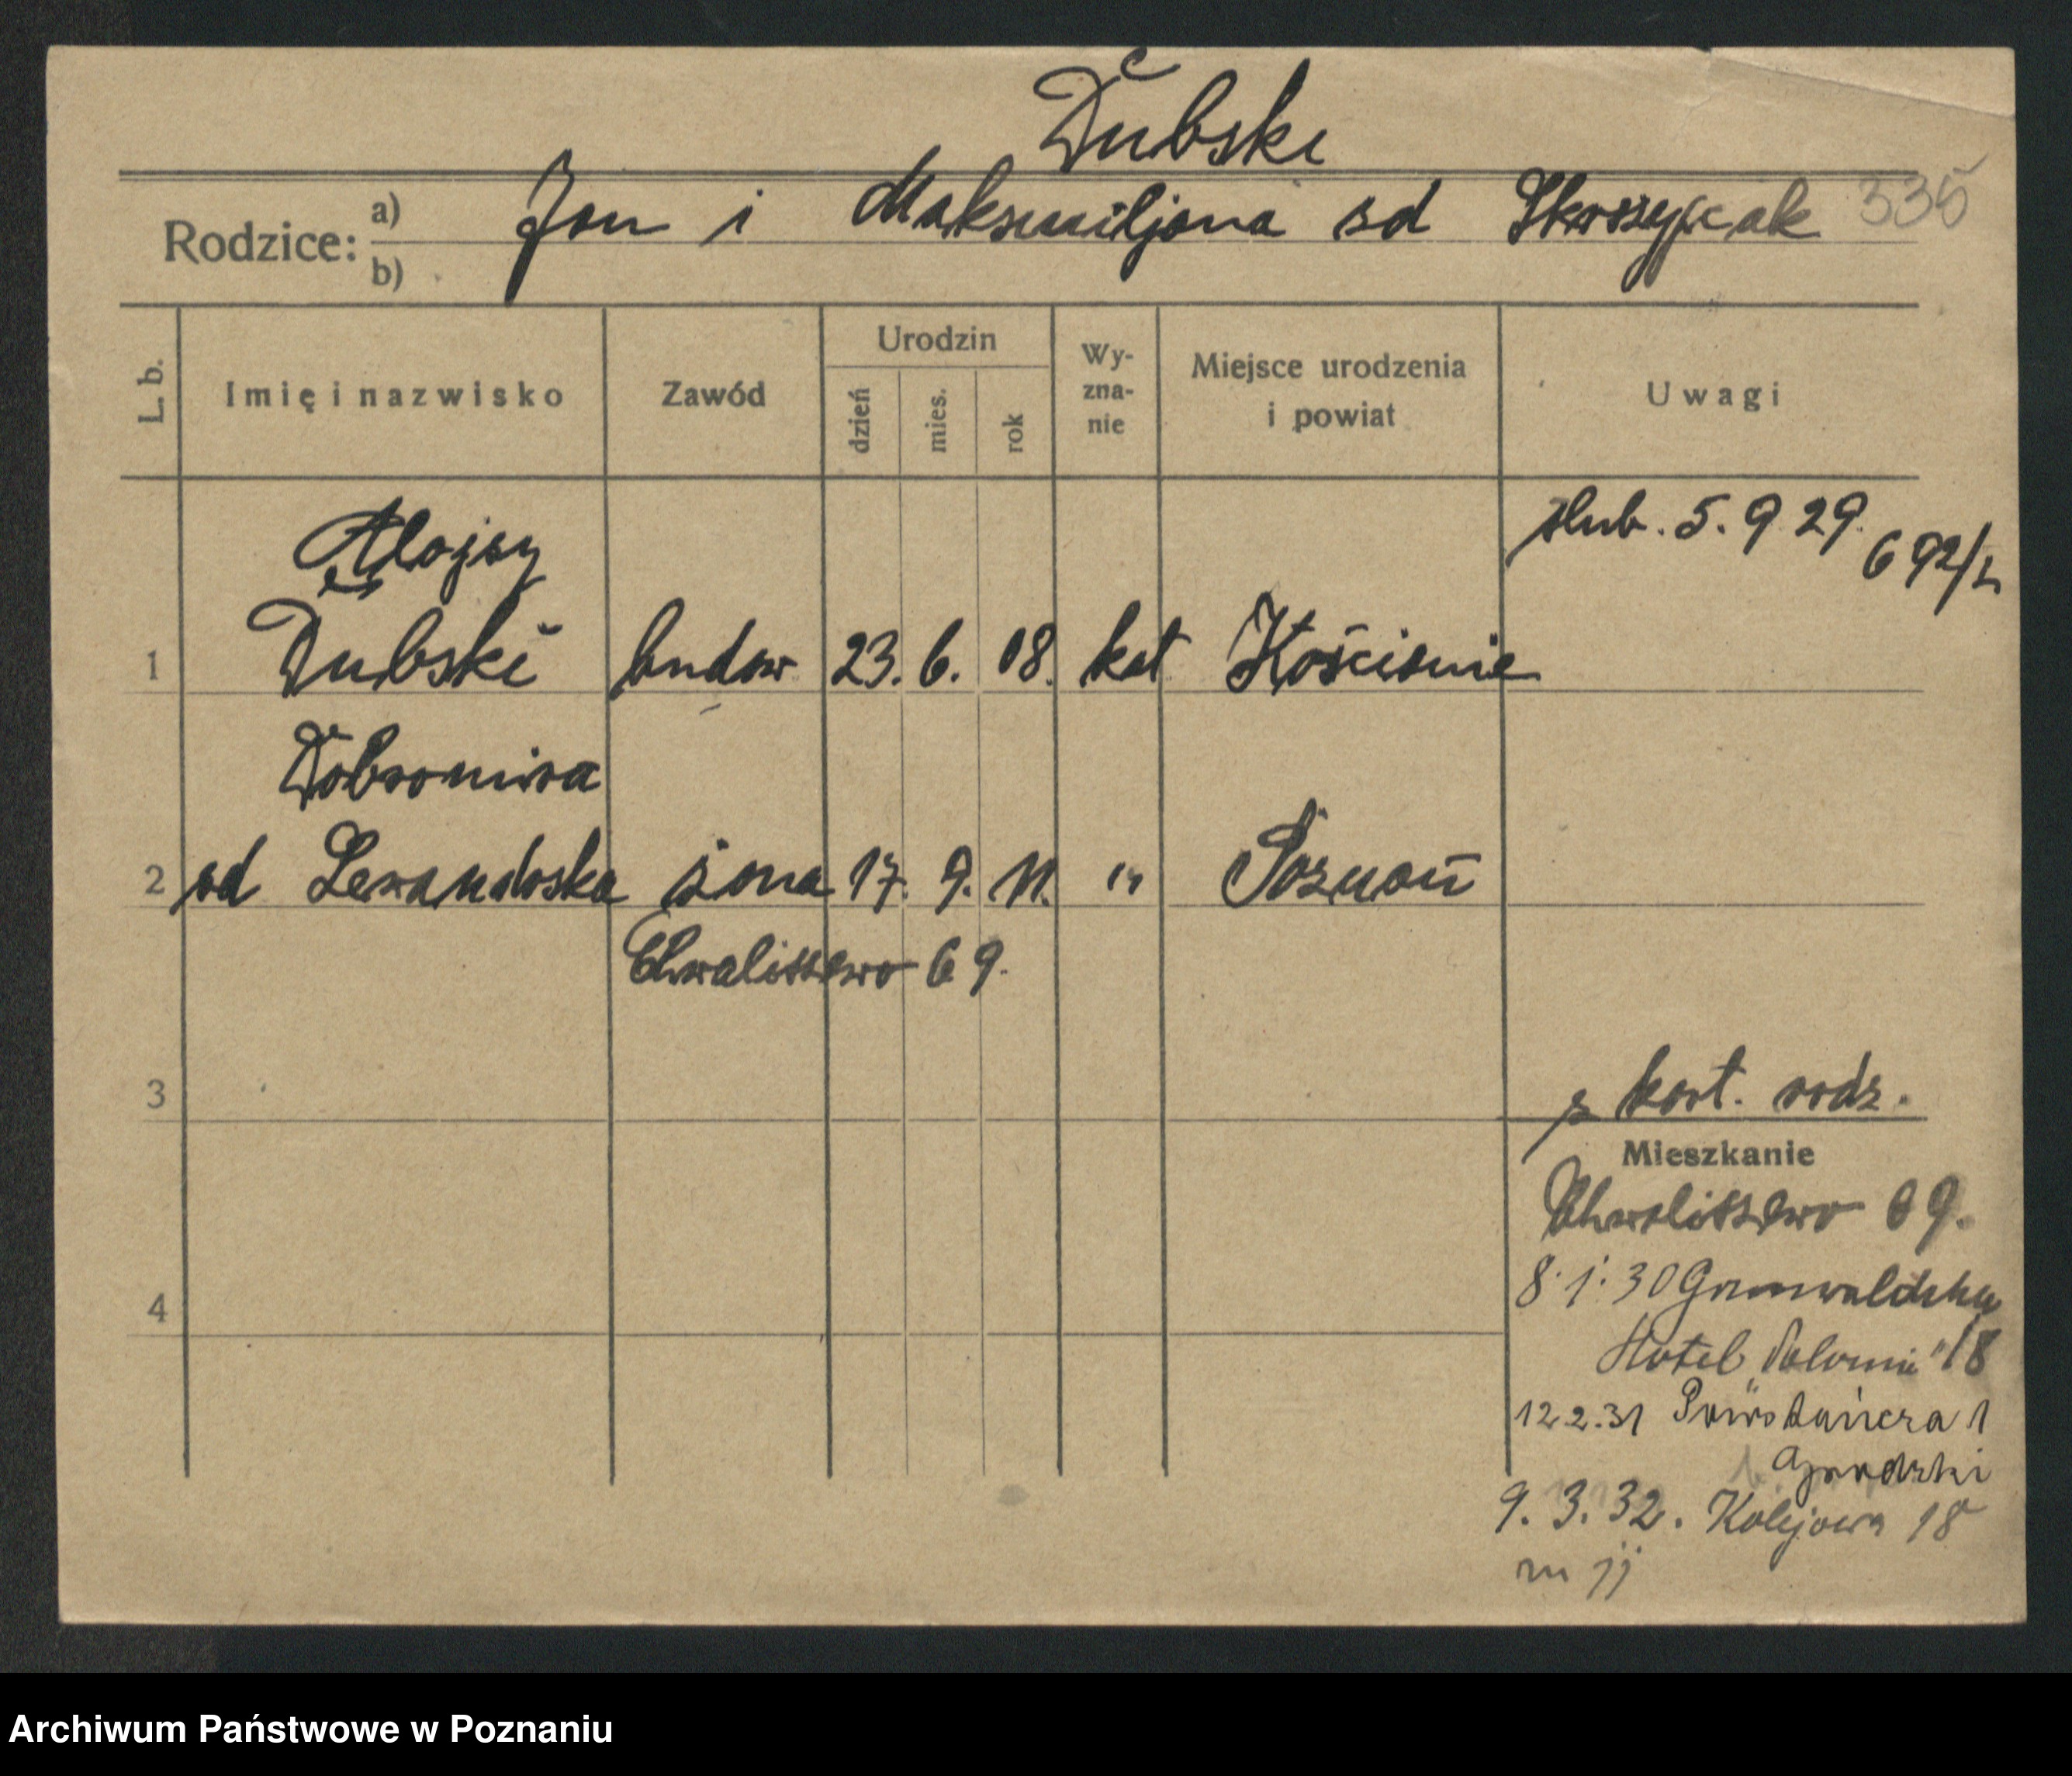 Dubski
Rodzice: a) b) Jan i Maksmiljana zd Skrzypczak 335
L. b. Imię i nazwisko Zawód Urodzin dzień mies. rok Wy-zna-nie Miejsce urodzenia i powiat Uwagi
ślub. 5. 9 29. 692/2
Alojzy
1 Dubski budow 23. 6. 08. kat Kościanie
Dobromira
2 zd Lewandoska żona 17. 9. 11. " Poznań
Chwaliszewo 69.
3
z kart. rodz.
Mieszkanie
Chwaliszewo 69.
8. 1. 30 Grunwaldzka
4
Hotel „Polonia" 18
12.2.31 Powstańcza 1
Grodzki
9. 3. 32. Kolejowa 18
m jj
Archiwum Państwowe w Poznaniu